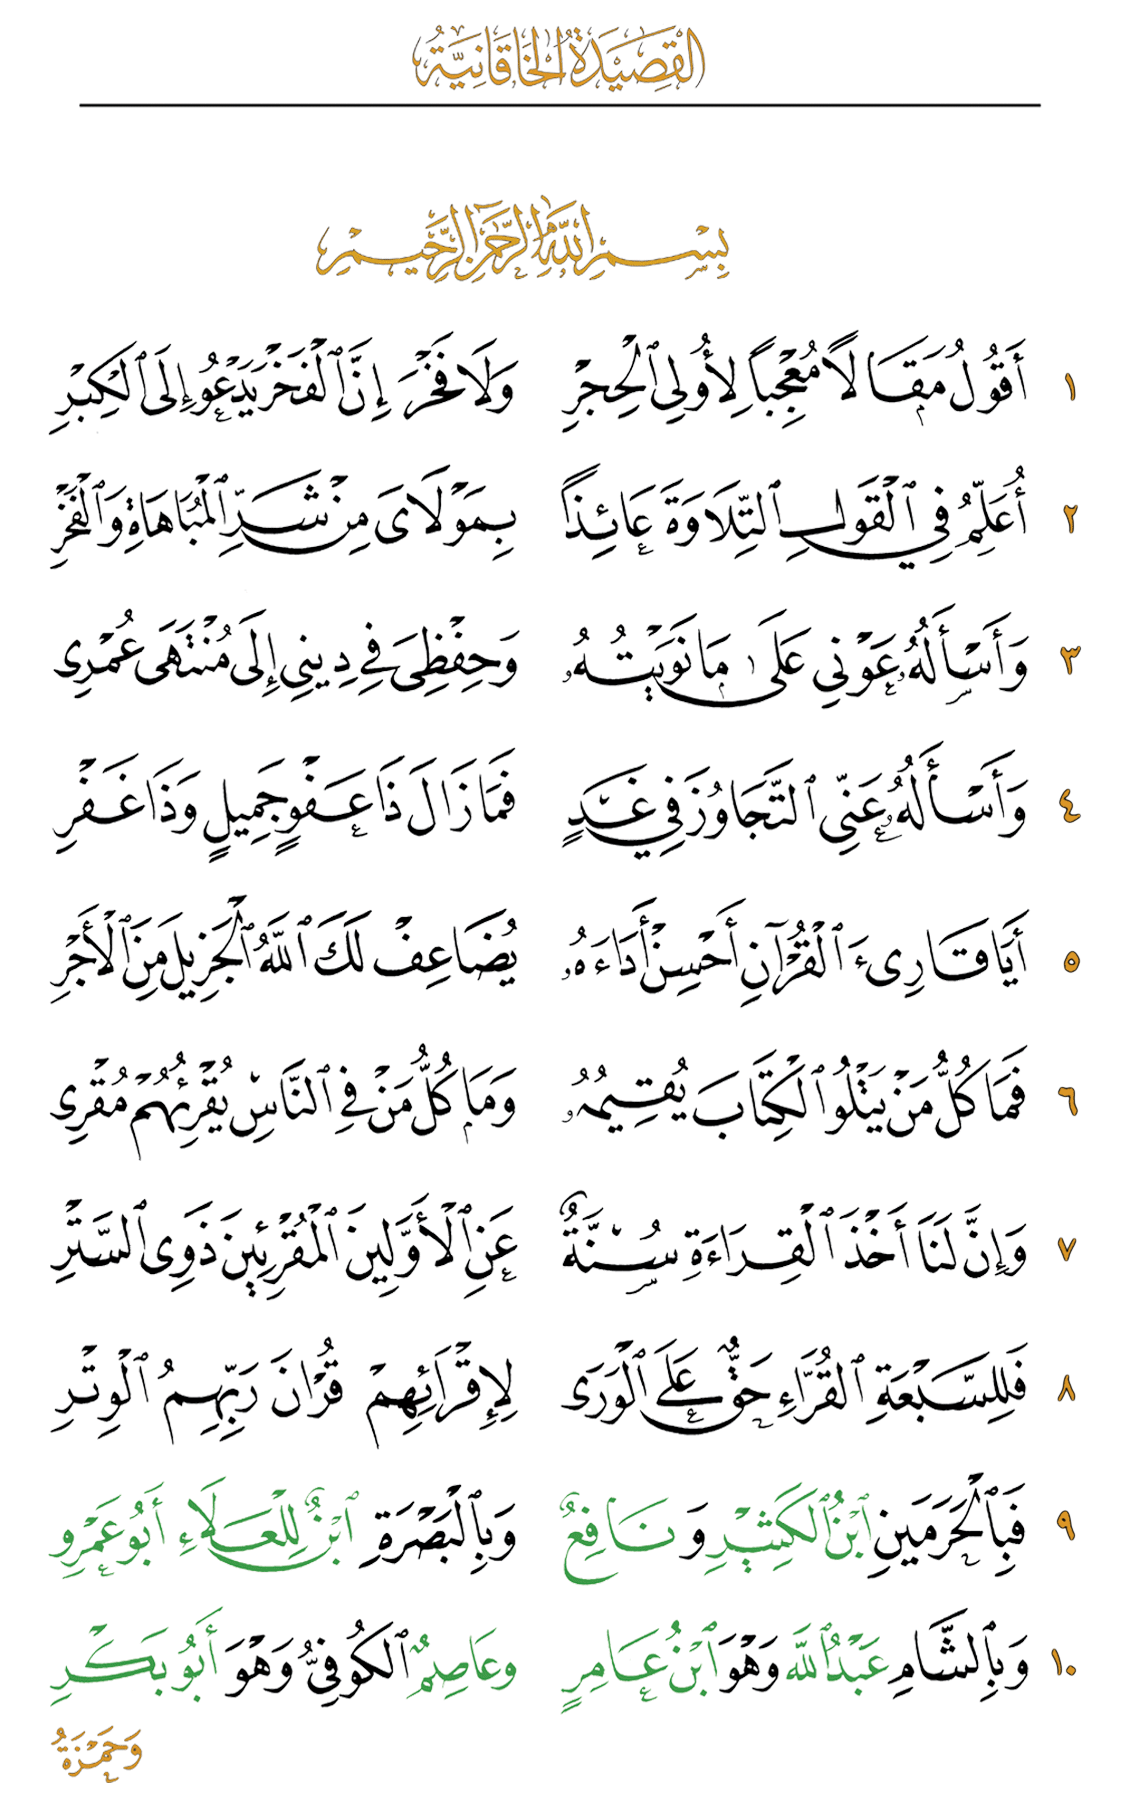 القَصِيدَةُ الخَاقَانِيَّةُ
بِسْمِ اللَّهِ الرَّحْمَٰنِ الرَّحِيمِ
١ أَقُولُ مَقَالًا مُعْجِبًا لِأُولِي ٱلْحِجْرِ وَلَا فَخْرَ إِنَّ ٱلْفَخْرَ يَدْعُو إِلَى ٱلْكِبْرِ
٢ أُعَلِّمُ فِي ٱلْقَوْلِ ٱلتِّلَاوَةَ عَائِذًا بِمَوْلَايَ مِنْ شَرِّ ٱلْمُبَاهَاةِ وَٱلْفَخْرِ
٣ وَأَسْأَلُهُ عَوْنِي عَلَى مَا نَوَيْتُهُ وَحِفْظِيَ فِي دِينِي إِلَى مُنْتَهَى عُمْرِي
٤ وَأَسْأَلُهُ عَنِّي ٱلتَّجَاوُزَ فِي غَدٍ فَمَا زَالَ ذَا عَفْوٍ جَمِيلٍ وَذَا غَفْرِ
٥ أَيَا قَارِىءَ ٱلْقُرْآنِ أَحْسِنْ أَدَاءَهُ يُضَاعِفْ لَكَ ٱللَّهُ ٱلْجَزِيلَ مِنَ ٱلْأَجْرِ
٦ فَمَا كُلُّ مَنْ يَتْلُو ٱلْكِتَابَ يُقِيمُهُ وَمَا كُلُّ مَنْ فِي ٱلنَّاسِ يُقْرِئُهُمْ مُقْرِي
٧ وَإِنَّ لَنَا أَخْذَ ٱلْقِرَاءَةِ سُنَّةٌ عَنِ ٱلْأَوَّلِينَ ٱلْمُقْرِئِينَ ذَوِي ٱلسَّتْرِ
٨ فَلِلسَّبْعَةِ ٱلْقُرَّاءِ حَقٌّ عَلَى ٱلْوَرَى لِإِقْرَائِهِمْ قُرْانَ رَبِّهِمُ ٱلْوِتْرِ
٩ فَبِٱلْحَرَمَيْنِ ٱبْنُ ٱلْكَثِيْرِ وَنَافِعٌ وَبِٱلْبَصْرَةِ ٱبْنٌ لِلْعَلَاءِ أَبُو عَمْرِو
١٠ وَبِٱلشَّامِ عَبْدُ ٱللَّهِ وَهْوَ ٱبْنُ عَامِرٍ وعَاصِمٌ ٱلكُوفِيُّ وَهْوَ أَبُو بَكْرِ
وَحَمْزَةُ